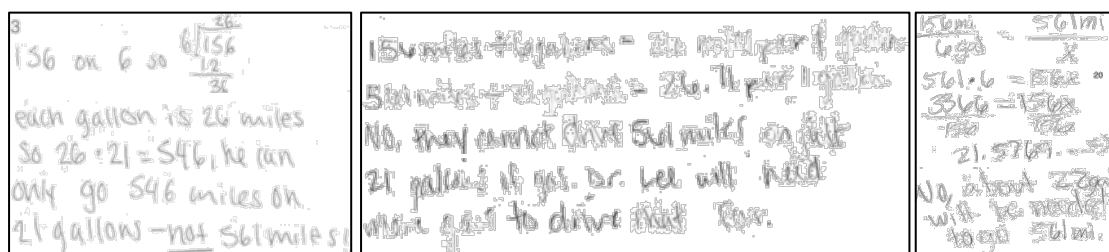 3
26
156 on 6 so 6)156
12
36
each gallon is 26 miles
so 26 · 21 = 546, he can
only go 546 miles on
21 gallons - not 561 miles!
156 miles ÷ 6 gallons = 26 miles per 1 gallon
561 miles ÷ = 26.71 per 1 gallon
No, they cannot drive 561 miles on just
21 gallons of gas. Dr. Lee will need
more gas to drive that far.
156mi 561mi
6 gal x
20
561·6 = 156x
3366 = 156x
21.5769
No, about 22 gal
will be needed
to go 561 mi.